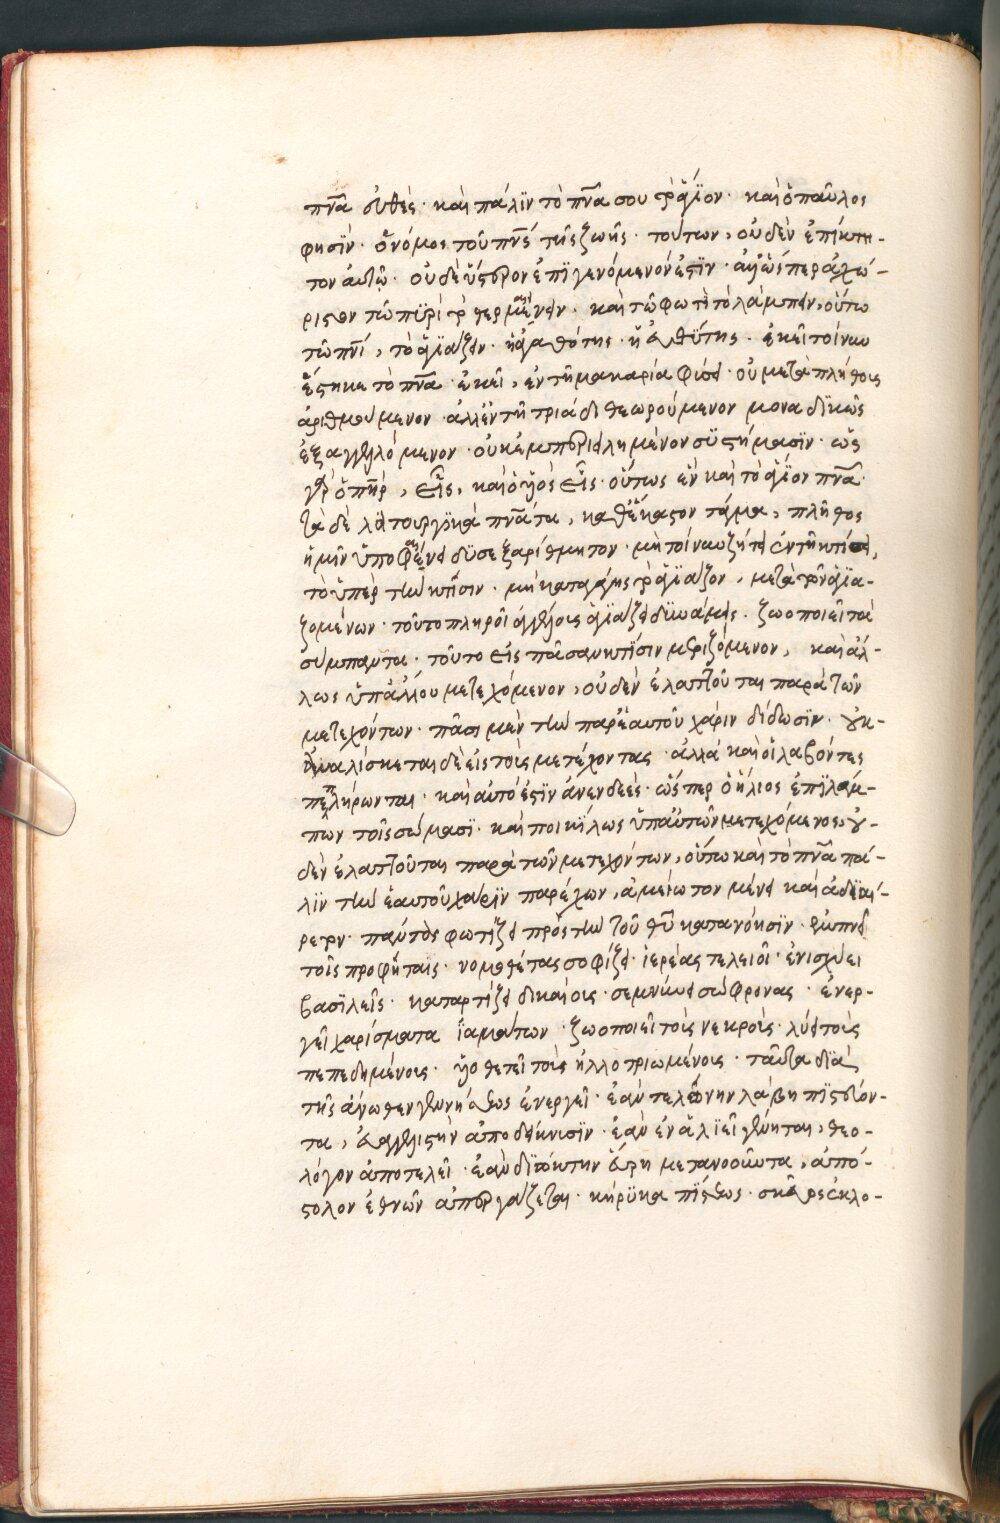 πν̅α εὐθὲς· καὶ πάλϊν τὸ πν̅α σου τὸ ἅγϊον· καὶ ὁ παῦλος
φησὶν· ὁ νόμος τοῦ πνς̅ τῆς ζωῆς· τούτων, οὐδὲν ἐπίκτη-
τον αὐτῷ· οὐδὲ ὕστερον ἐπϊγενόμενόν ἐστϊν· ἀλλ' ὥσπερ ἀχώ-
ριστον τῶ πυρὶ τὸ θερμαίνειν· καὶ τῶ φωτὶ τὸ λάμπειν, οὕτω
τῶ πνί̅, τὸ ἁγϊάζειν· ἡ ἀγαθότης· ἡ εὐθύτης· ἐκεῖ τοίνυν
ἕστηκε τὸ πν̅α· ἐκεῖ, ἐν τῆ μακαρία φύσει· οὐ μετὰ πλήθους
ἀριθμούμενον· ἀλλ' ἐν τῆ τριάδι θεωρούμενον μοναδϊκῶς
ἐξαγγελλόμενον· οὐκ ἐμπεριειλημμένον συστήμασϊν· ὡς
γὰρ ὁ πη̅ρ, εἷς, καὶ ὁ υἱὸς εἷς· οὕτως ἓν καὶ τὸ ἅγϊον πν̅α·
τὰ δὲ λειτουργϊκὰ πν̅ατα, καθ' ἕκαστον τάγμα, πλῆθος
ἡμῖν ὑποφαίνει δυσεξαρίθμητον· μὴ τοίνυν ζήτει ἐν τῆ κτίσει,
τὸ ὑπὲρ τὴν κτίσιν· μὴ καταγάγης τὸ ἁγϊάζον, μετὰ τῶν ἁγϊα-
ζομένων· τοῦτο πληροῖ ἀγγέλους ἁγϊάζει δυνάμεις· ζωοποιεῖ τὰ
σύμπαντα· τοῦτο εἰς πᾶσαν κτίσιν μεριζόμενον, καὶ ἄλ-
λως ὑπ' ἄλλου μετεχόμενον, οὐδὲν ἐλαττοῦται παρὰ τῶν
μετεχόντων· πᾶσι μὲν τὴν παρ' ἑαυτοῦ χάριν δίδωσϊν· οὐκ
ἀναλίσκεται δὲ εἰς τοὺς μετέχοντας· ἀλλὰ καὶ οἱ λαβόντες
πεπλήρωνται· καὶ αὐτό ἐστϊν ἀνενδεές· ὥσπερ ὁ ἥλιος ἐπϊλάμ-
πων τοῖς σώμασϊ· καὶ ποικίλως ὑπ' αὐτῶν μετεχόμενος, οὐ-
δὲν ἐλαττοῦται παρὰ τῶν μετεχόντων, οὕτω καὶ τὸ πν̅α πά-
λϊν τὴν ἑαυτοῦ χάρϊν παρέχων, ἀμείωτον μένει καὶ ἀδϊαί-
ρετον· πάντας φωτίζει πρὸς τὴν τοῦ θυ̅ κατανόησϊν· ἐμπνεῖ
τοῖς προφήταις· νομοθέτας σοφίζει· ἱερέας τελειοῖ· ἐνισχύει
βασϊλεῖς· καταρτίζει δικαίους· σεμνύνει σώφρονας· ἐνερ-
γεῖ χαρίσματα ἰαμάτων· ζωοποιεῖ τοὺς νεκροὺς· λύει τοὺς
πεπεδημένους· υἱοθετεῖ τοὺς ἠλλοτριωμένους· ταῦτα διὰ
τῆς ἄνωθεν γεννήσεως ἐνεργεῖ· ἐὰν τελώνην λάβη πϊστεύον-
τα, εὐαγγελιστὴν ἀποδείκνυσϊν· ἐὰν ἐν ἁλϊεῖ γένηται, θεο-
λόγον ἀποτελεῖ· ἐὰν διώκτην εὕρη μετανοοῦντα, ἀπό-
στολον ἐθνῶν ἀπεργάζεται· κήρυκα πίστεως· σκεῦος ἐκλο-